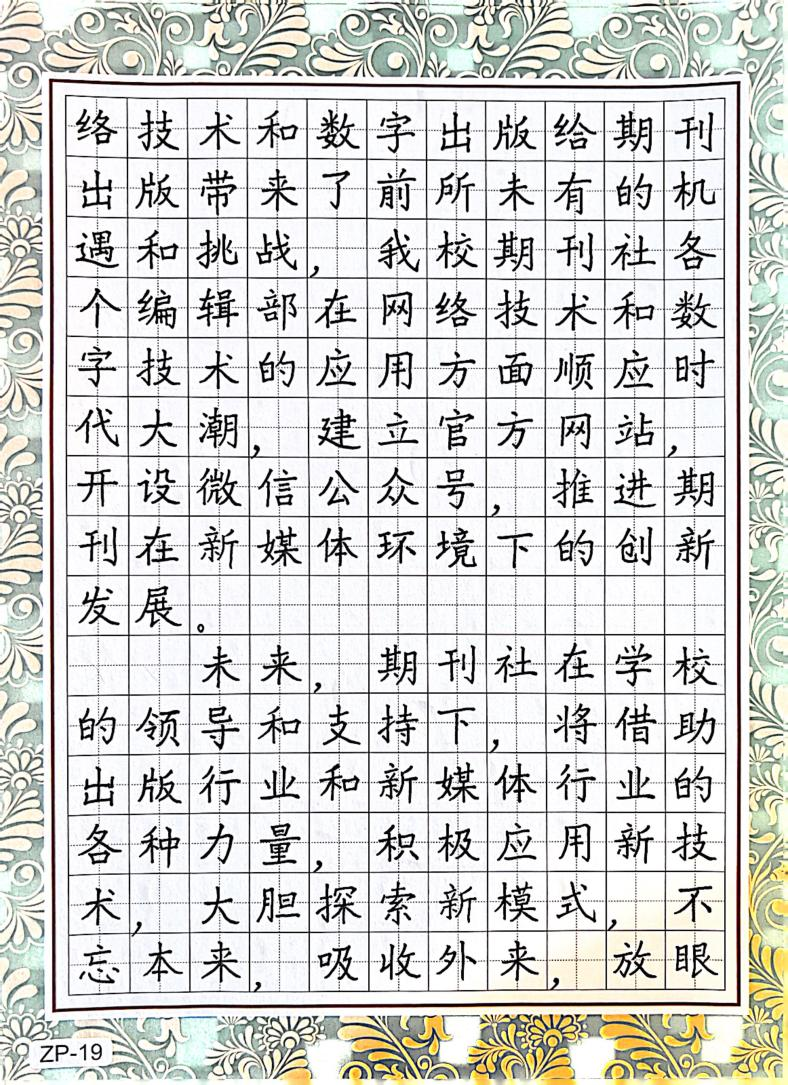 络技术和数字出版给期刊
出版带来了前所未有的机
遇和挑战，我校期刊社各
个编辑部在网络技术和数
字技术的应用方面顺应时
代大潮，建立官方网站，
开设微信公众号，推进期
刊在新媒体环境下的创新
发展。
未来，期刊社在学校
的领导和支持下，将借助
出版行业和新媒体行业的
各种力量，积极应用新技
术，大胆探索新模式，不
忘本来，吸收外来，放眼
ZP-19